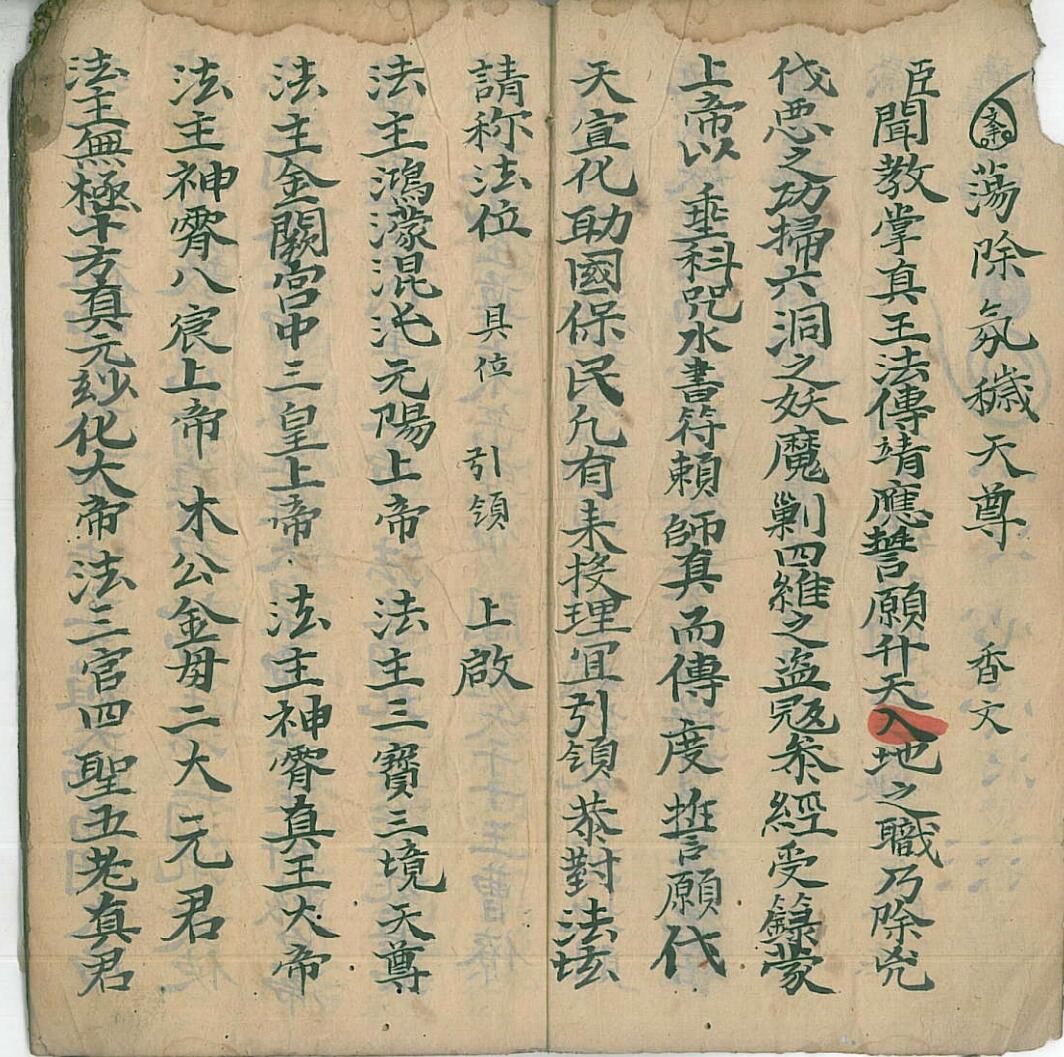 蕩除氛穢天尊 香文
臣聞教掌真王法傳靖應誓願升天入地之職乃除兇
伐恶之功掃六洞之妖魔剿四維之盗寇叅經受籙蒙
上帝以垂科咒水書符賴師真而傳度誓願代
天宣化助國保民凢有来投理宜引領恭對法坛
請称法位 具倅 引領 上啟
法主鴻濛混沌元陽上帝 法主三寳三境天尊
法主金闕宮中三皇上帝 法主神霄真王大帝
法主神霄八宸上帝 木公金母二大元君
法主無極十方真元玅化大帝法三官四聖五老真君